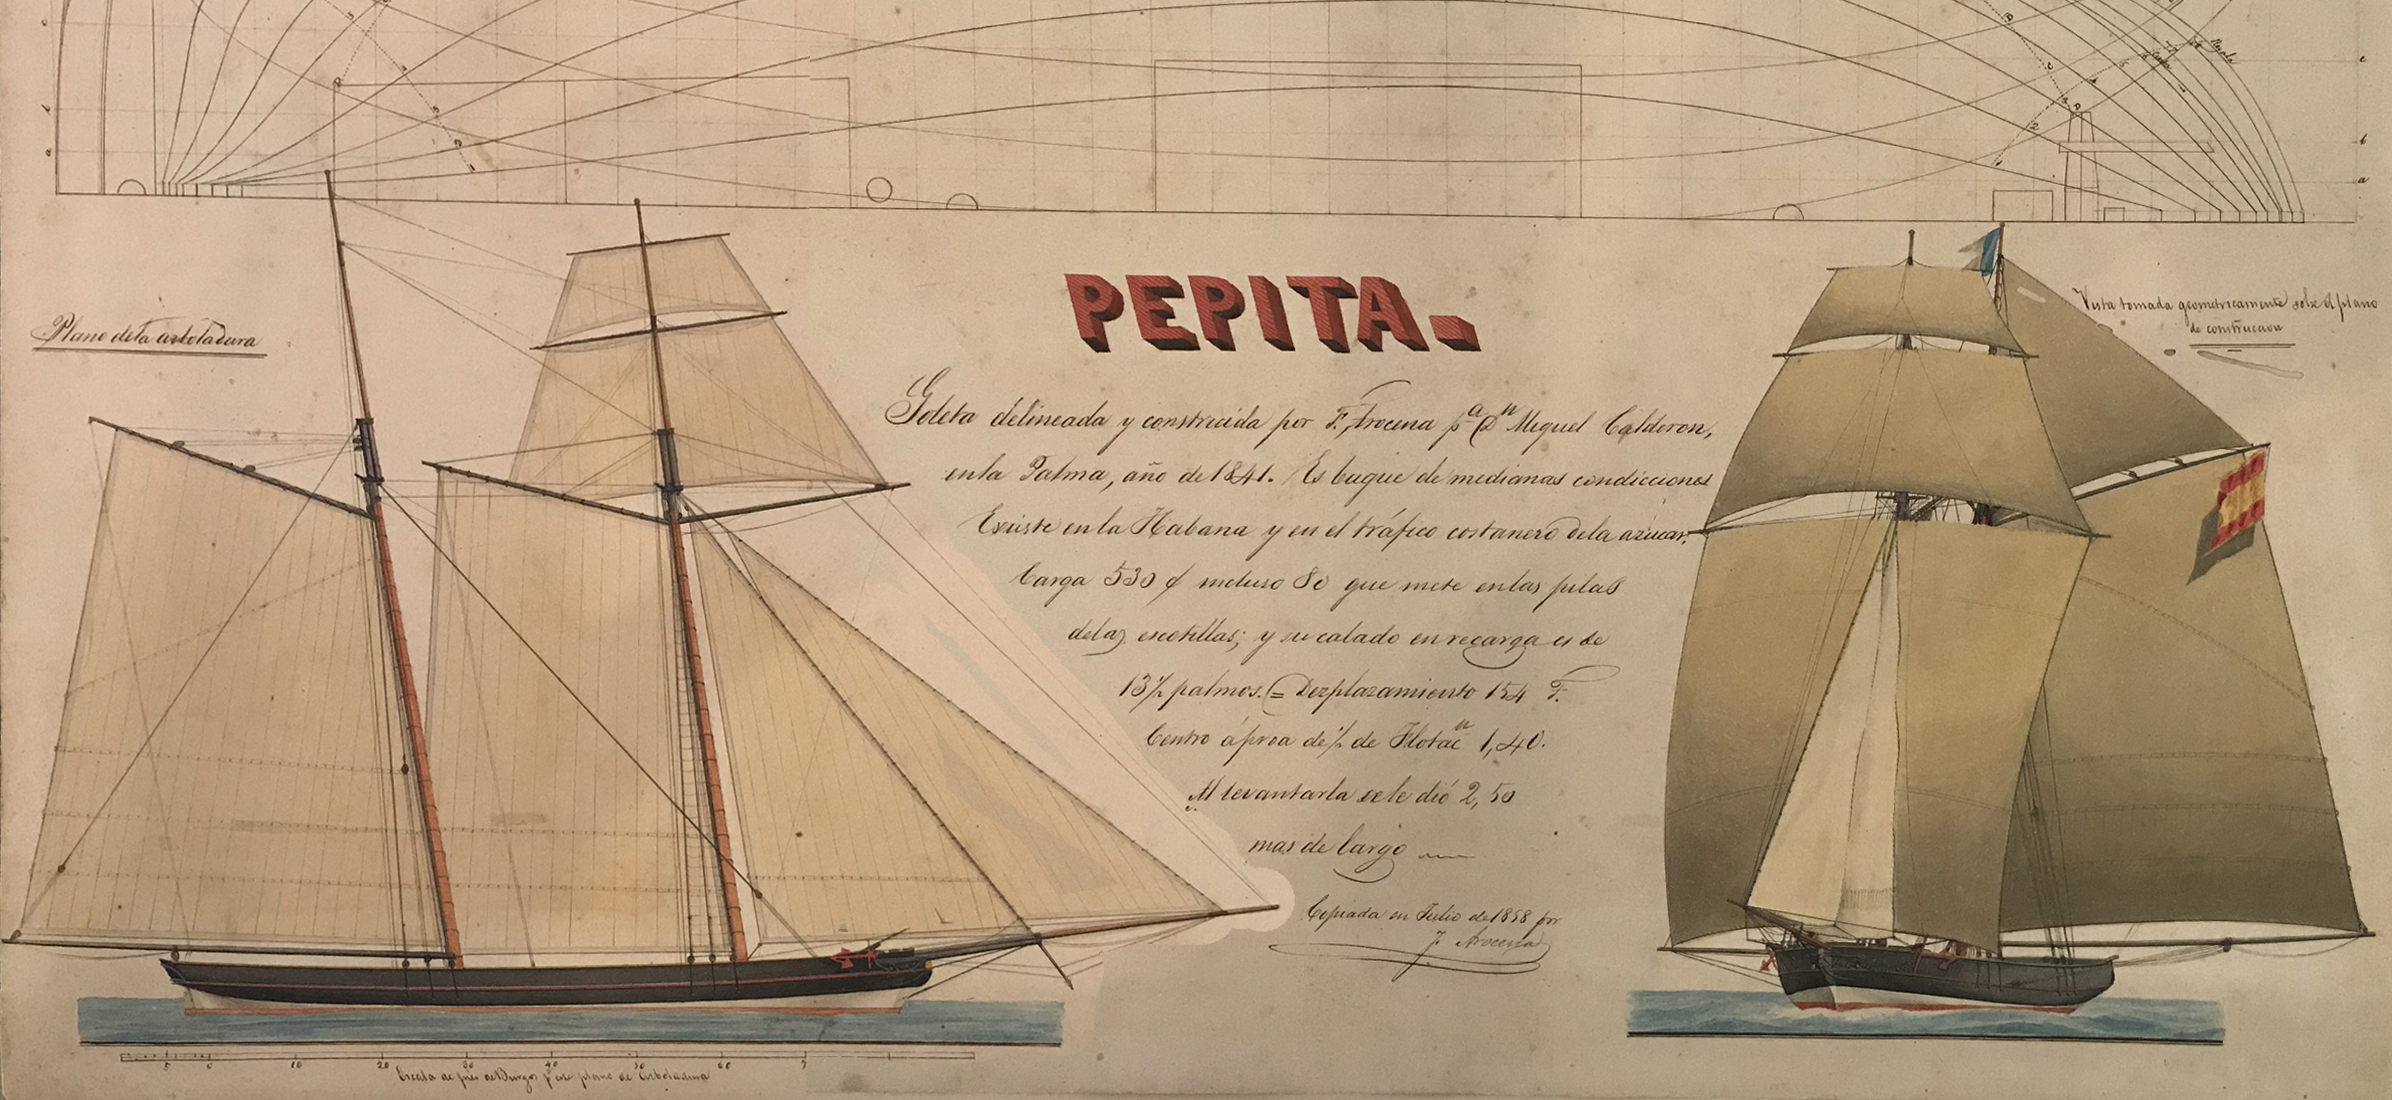 PEPITA.
Plano dela arboladura
Vista tomada geometricamente sobre el plano
de construccion
Goleta delineada y construida por F. Arocena pª Dⁿ Miguel Calderon,
enla Palma, año de 1841. Es buque de medianas condicciones
Existe en la Habana y en el tráfico costanero dela azucar.
Carga 530 incluso 80 que mete enlas pilas
delas escotillas; y su calado en recarga es de
13½ palmos. = Desplazamiento 154 F.
Centro á proa de ½ de Flotacⁿ 1,40.
Al levantarla sele dió 2,50
mas de largo
Copiada en Julio de 1858 por
J. Arocena
5 0 10 20 30 40 50 60 7
Escala de piés de Burgos pª este plano de Arboladura